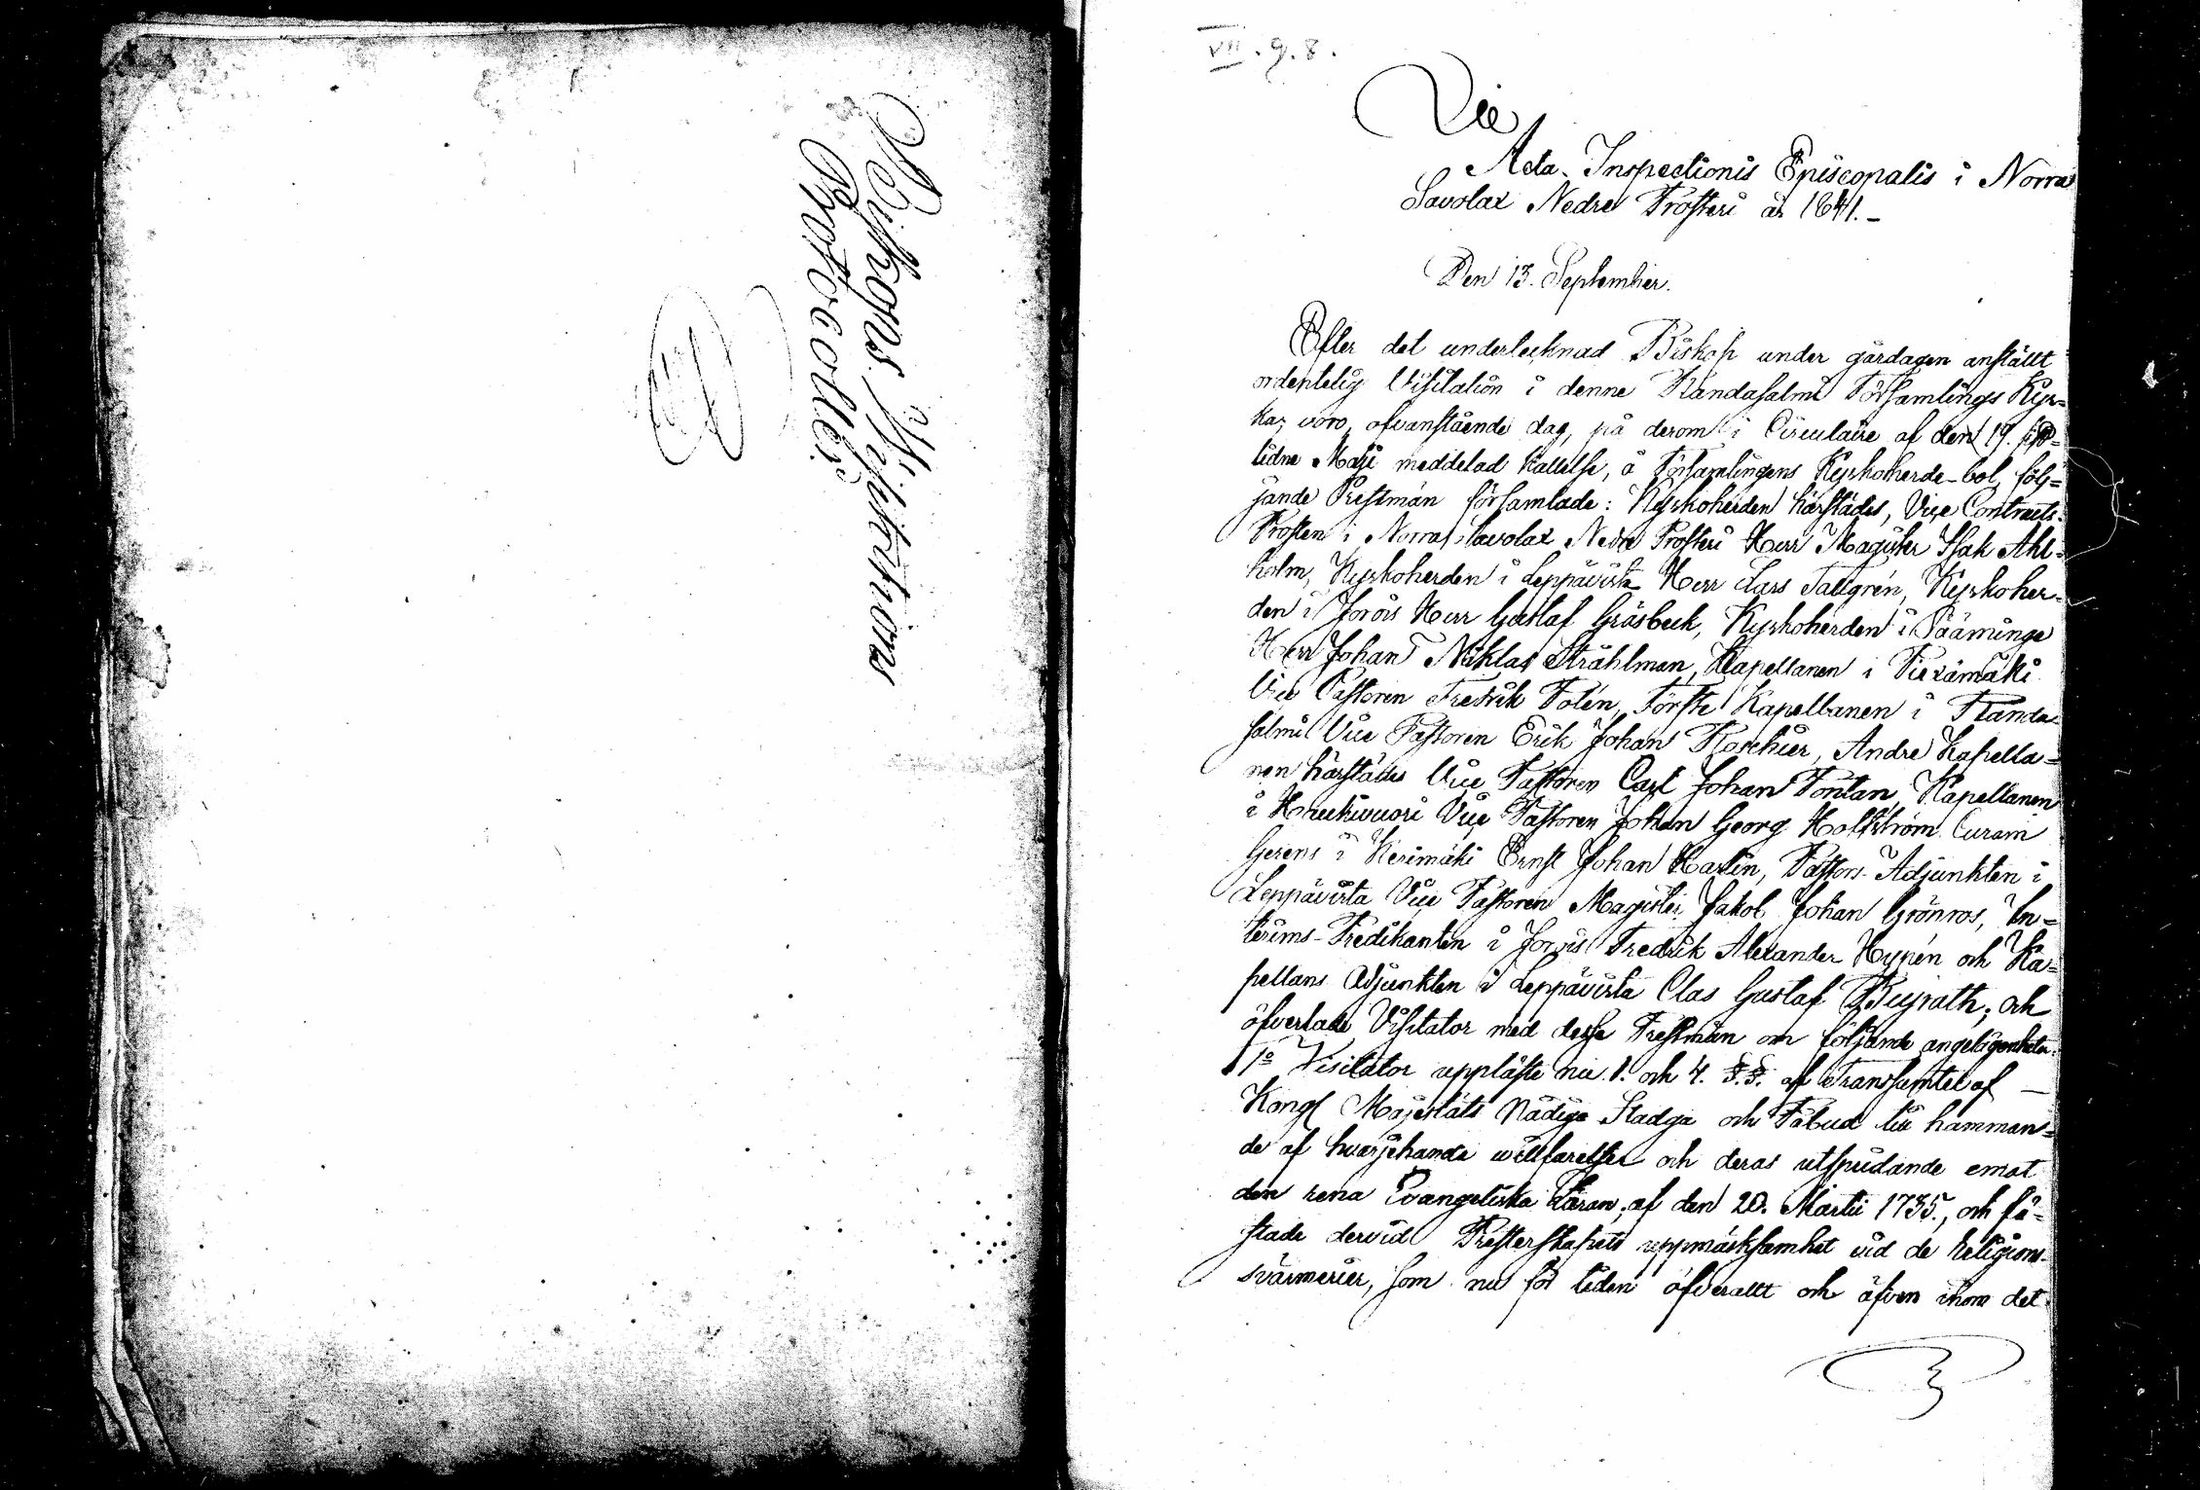 Biskops Visitations
Protocoller.
VII. g. 8.
Vid
Acta Inspectionis Episcopalis i Norra
Savolax Nedre Prosteri år 1841.
Den 13. September.
Efter det undertecknad Biskop under gårdagen anställt
ordentelig Visitation i denne Randasalmi Församlings Kyr=
ka, voro, ofvanstående dag, på derom i Circulaire af den 19. sist=
lidne Maji meddelad kallelse, å Församlingens Kyrkoherde-bol, följ=
jande Prestmän församlade: Kyrkoherden härstädes, Vice Contracts-
Prosten i Norra Savolax Nedre Prosteri Herr Magister Isak Ahl=
holm, Kyrkoherden i Leppävirta Herr Lars Tallgrén, Kyrkoher=
den i Jorois Herr Gustaf Gråsbeck, Kyrkoherden i Sääminge
Herr Johan Niklas Stråhlman, Kapellanen i Piexämäki
Vice Pastoren Fredrik Polén, Förste Kapellanen i Randa=
salmi Vice Pastoren Erik Johan Roschier, Andre Kapella=
nen härstädes Vice Pastoren Carl Johan Pontan, Kapellanen
i Haukivuori Vice Pastoren Johan Georg Holtström Curam
Gerens i Kerimäki Ernst Johan Hartin, Pastors-Adjunkten i
Leppävirta Vice Pastoren Magister Jakob Johan Grönros, In=
terims-Predikanten i Jorois Fredrik Alexander Hypén och Ka=
pellans Adjunkten i Leppävirta Clas Gustaf Beyrath; och
öfverlade Visitator med desse Prestmän om följande angelägenheter.
1º Visitator uppläste nu 1. och 4. §.§. af Transumtet af
Kongl Majestäts Nådiga Stadga och Påbud till hämman=
de af hvarjehanda willfarelser och deras utspridande emot
den rena Evangeliska Läran, af den 20. Martii 1735, och fä=
stade dervid Presterskapets uppmärksamhet vid de Religions-
svärmerier, som nu för tiden öfverallt och äfven inom det